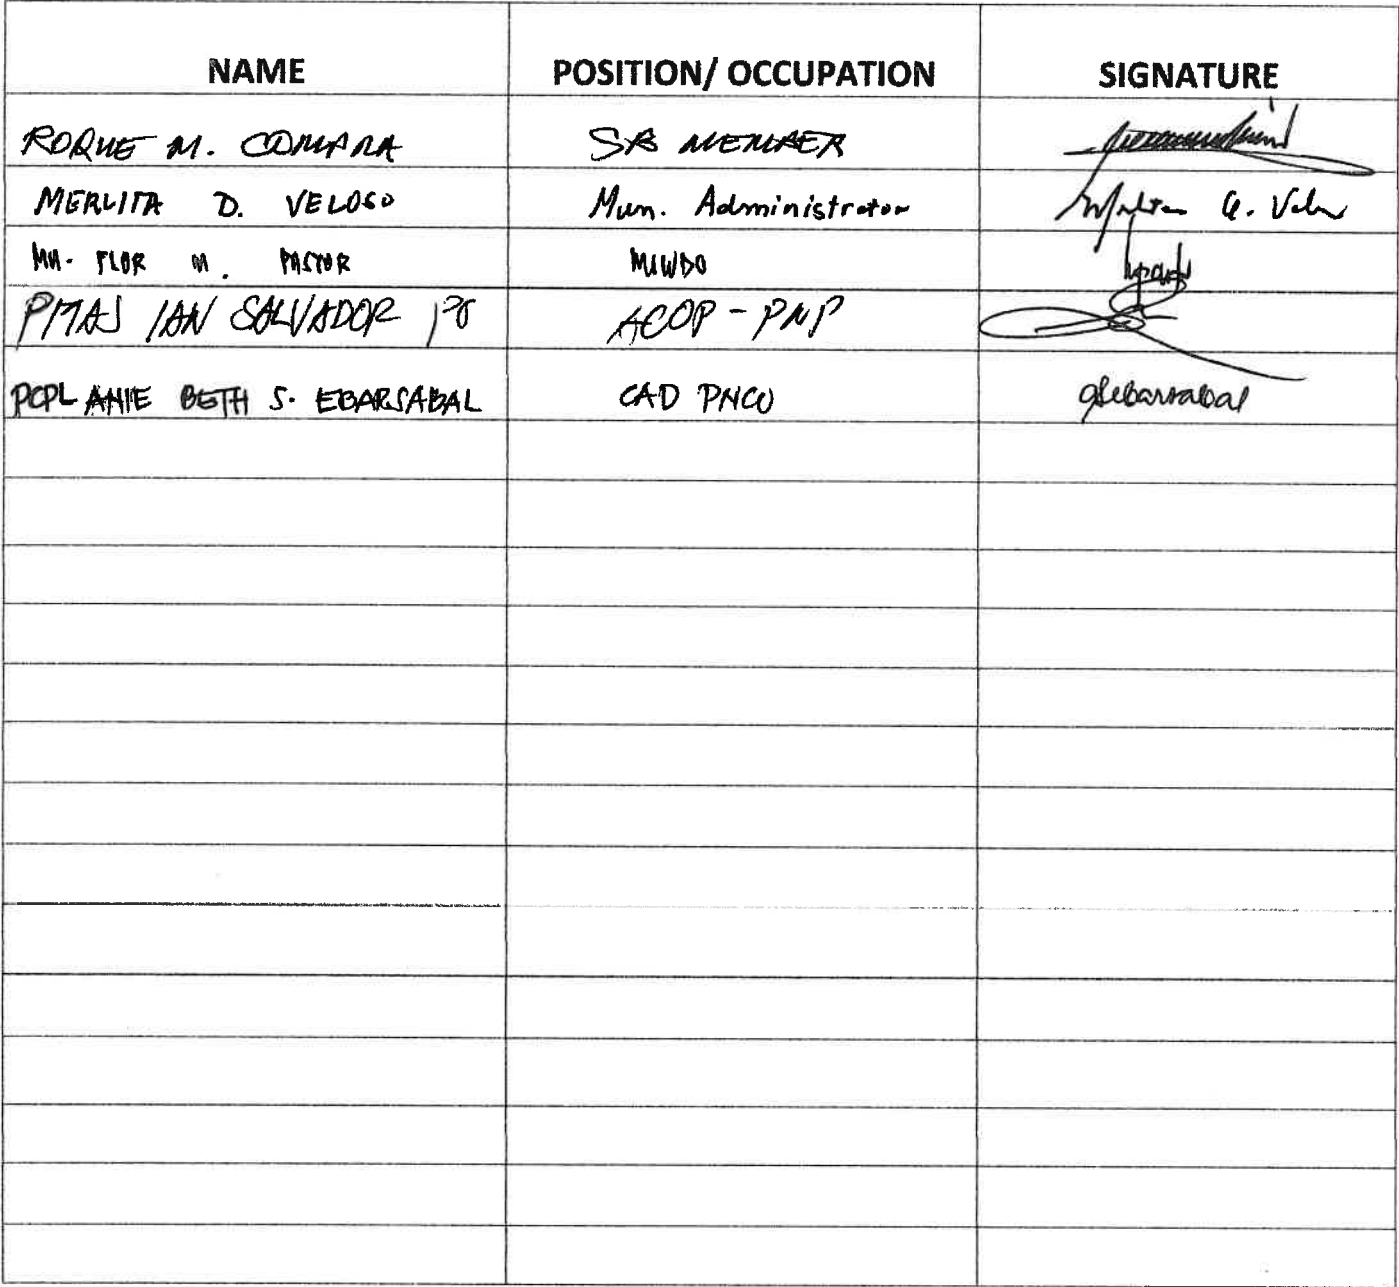 NAME POSITION/ OCCUPATION SIGNATURE
ROQUE M. COMPARA SB MEMBER
MERLITA D. VELOSO Mun. Administrator
MA. FLOR M. PASTOR MSWDO
IAN SALVADOR ACOP - PNP
PCPL ANIE BETH S. EBARSABAL CAD PNCO